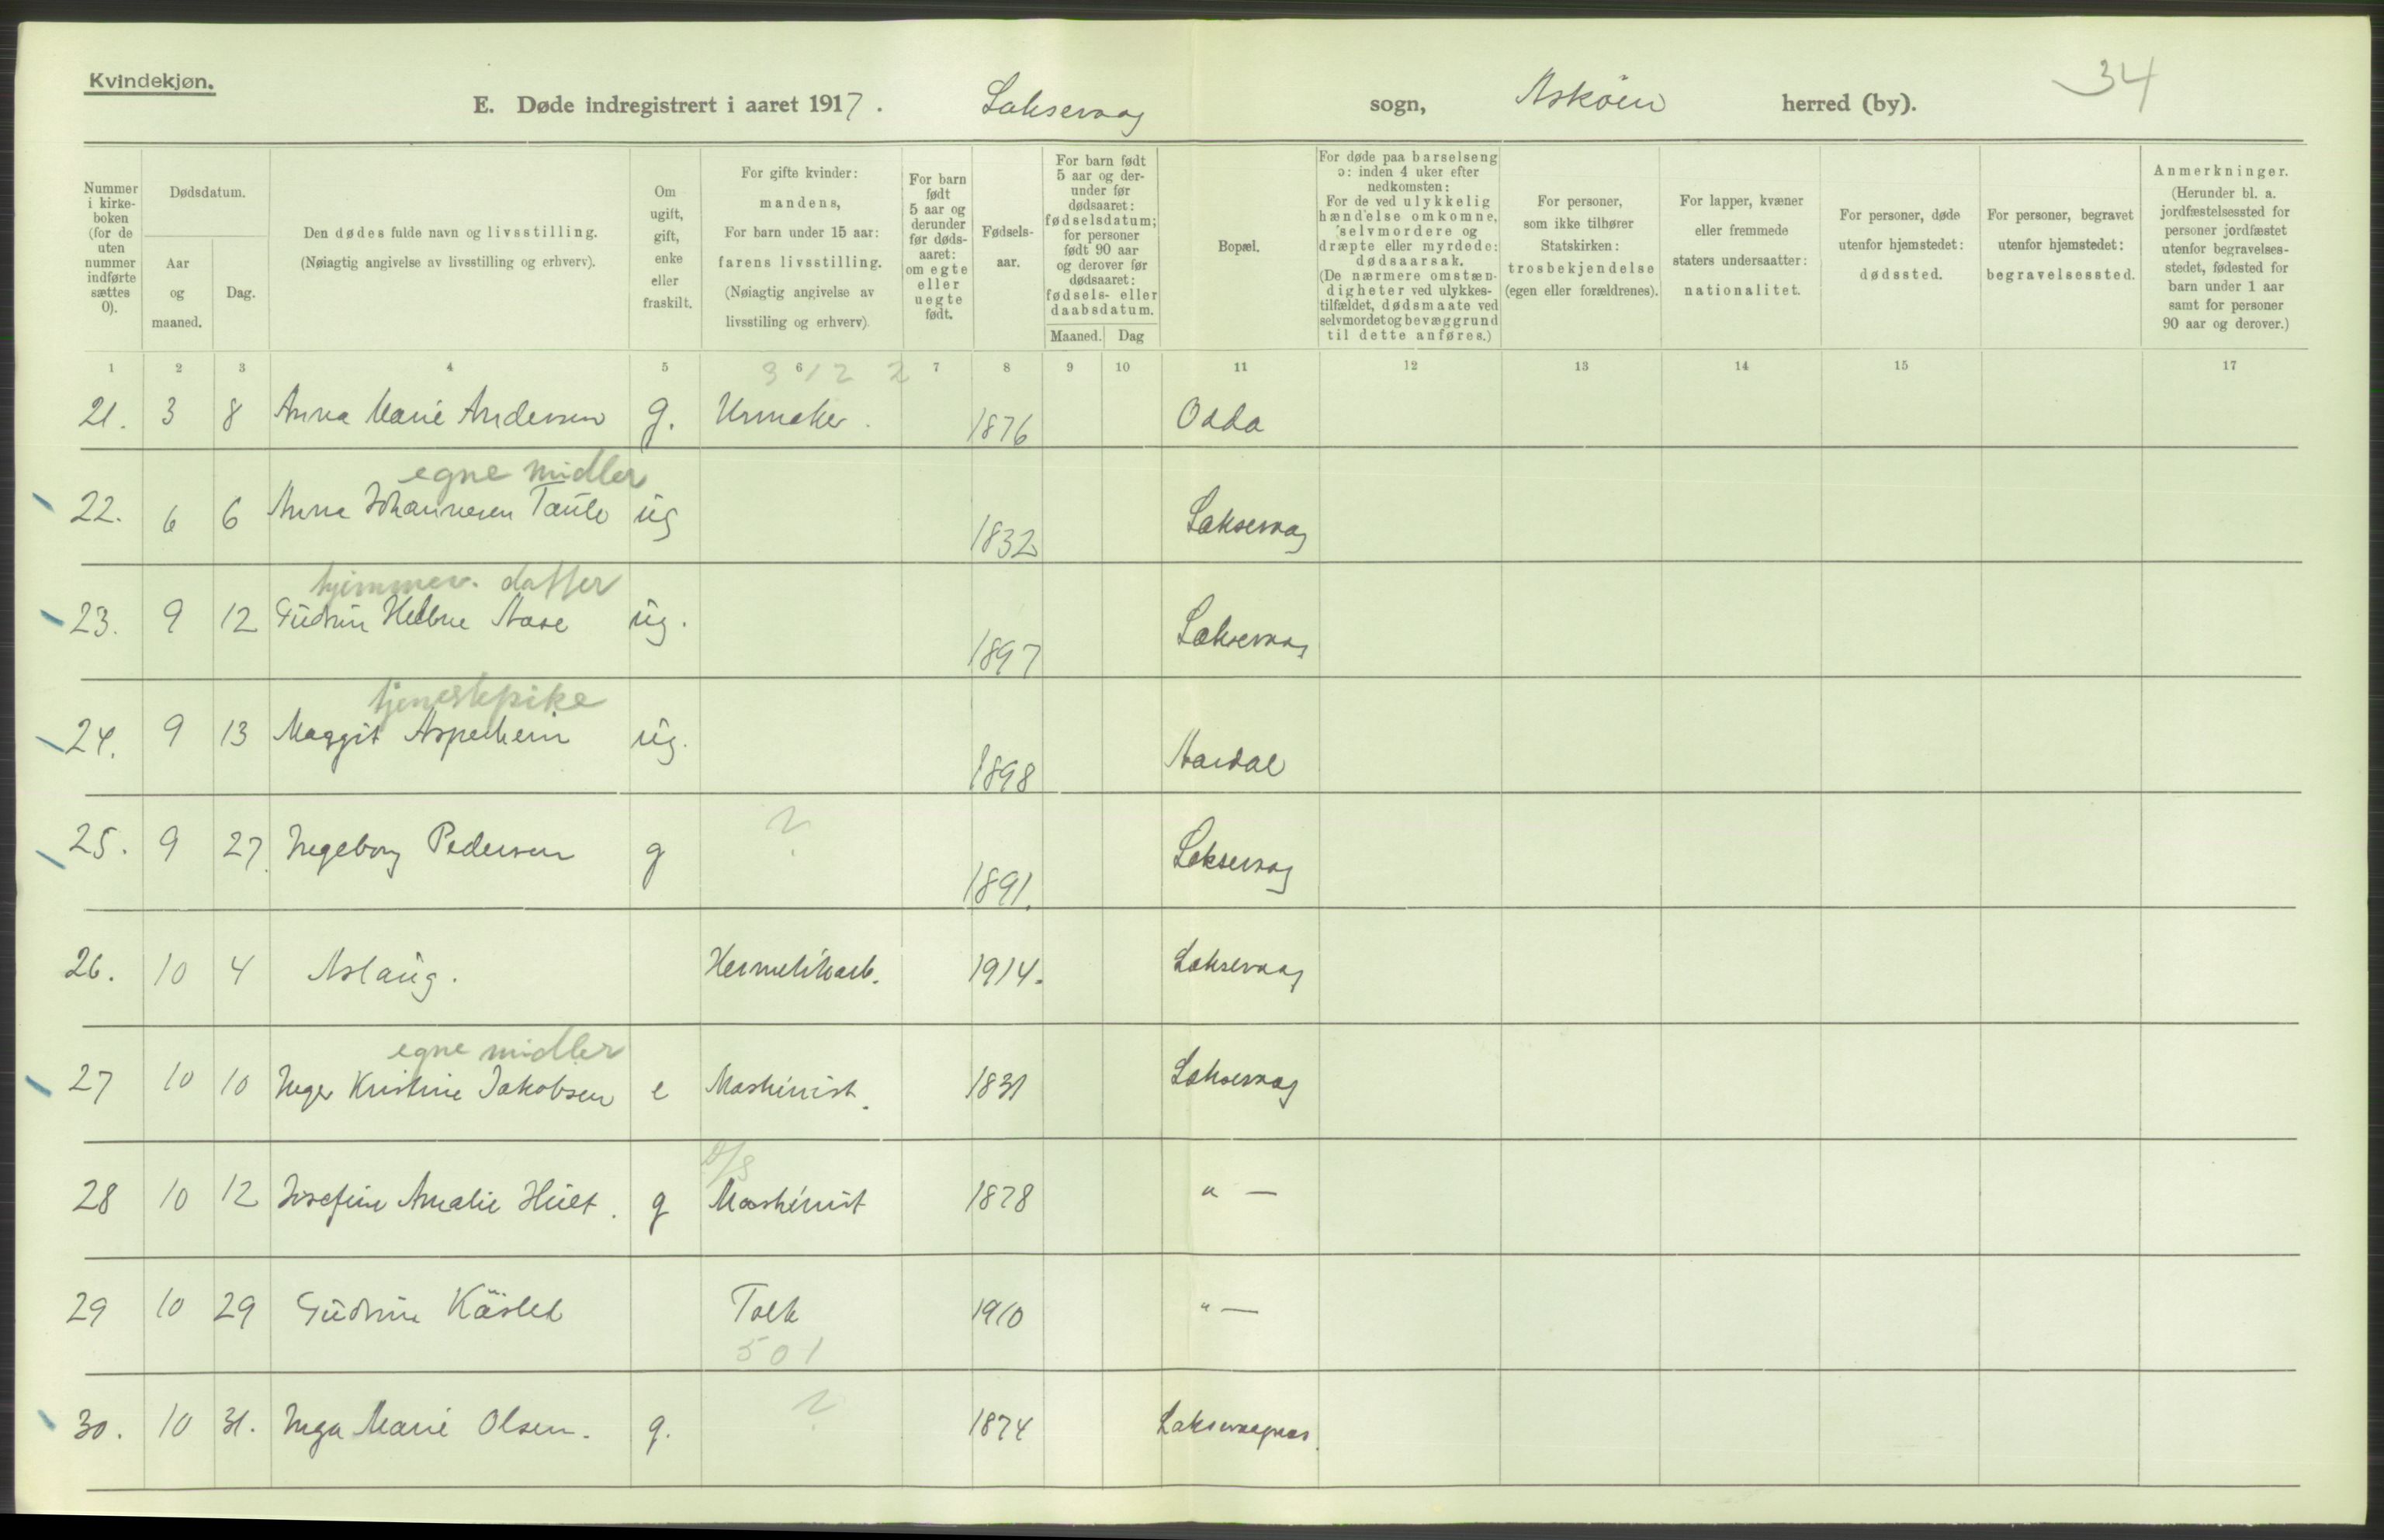 Kvindekjøn.
34
E. Døde indregistrert i aaret 1917. Laksevaag sogn, Askøen herred (by).
Nummer i kirkeboken (for de uten nummer indførte sættes 0).
Dødsdatum.
Aar og maaned.
Dag.
Den dødes fulde navn og livsstilling.
(Nøiagtig angivelse av livsstilling og erhverv).
Om ugift, gift, enke eller fraskilt.
For gifte kvinder: mandens,
For barn under 15 aar: farens livsstilling.
(Nøiagtig angivelse av livsstiling og erhverv).
For barn født 5 aar og derunder før dødsaaret: om egte eller uegte født.
Fødselsaar.
For barn født 5 aar og derunder før dødsaaret: fødselsdatum; for personer født 90 aar og derover før dødsaaret: fødsels- eller daabsdatum.
Maaned. Dag
Bopæl.
For døde paa barselseng ɔ: inden 4 uker efter nedkomsten:
For de ved ulykkelig hændelse omkomne, selvmordere og dræpte eller myrdede: dødsaarsak.
(De nærmere omstændigheter ved ulykkestilfældet, dødsmaate ved selvmordet og bevæggrund til dette anføres.)
For personer, som ikke tilhører Statskirken: trosbekjendelse (egen eller forældrenes).
For lapper, kvæner eller fremmede staters undersaatter: nationalitet.
For personer, døde utenfor hjemstedet: dødssted.
For personer, begravet utenfor hjemstedet: begravelsessted.
Anmerkninger.
(Herunder bl. a. jordfæstelsessted for personer jordfæstet utenfor begravelsesstedet, fødested for barn under 1 aar samt for personer 90 aar og derover.)
1 2 3 4 5 6 7 8 9 10 11 12 13 14 15 17
3 12 2
21. 3 8 Anna Marie Andersen g. Urmaker. 1876 Odda
egne midler
22. 6 6 Anna Johannesen Taule ug 1832 Laksevaag
hjemmev. datter
23. 9 12 Gudrun Helene Aase ug. 1897 Laksevaag
tjenestepike
24. 9 13 Maggit Asperheim ug. 1898 Aardal
25. 9 27. Ingeborg Pedersen g ? 1891. Laksevaag
26. 10 4 Aslaug. Hermetikarb. 1914. Laksevaag
egne midler
27 10 10 Inger Kristine Jakobsen e Maskinist. 1831 Laksevaag
D/S
28 10 12 Josefine Amalie Hult. g Maskinist 1878 " —
29 10 29 Gudrun Tolk 1910 " —
501
30. 10 31. Inga Marie Olsen. g. ? 1874